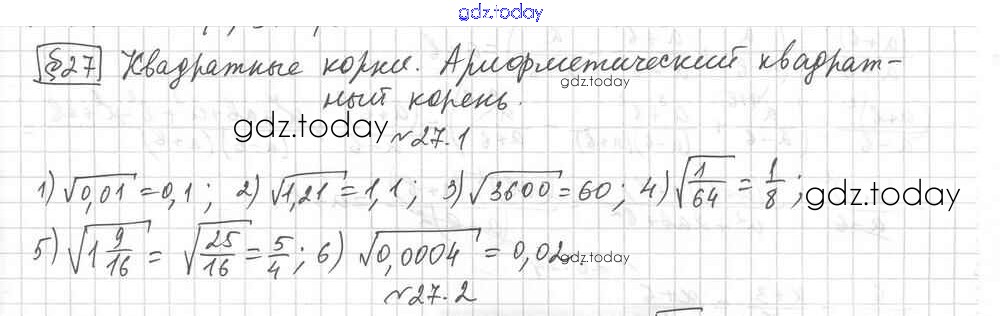 gdz.today
§27 Квадратные корни. Арифметический квадрат-
ный корень.
gdz.today
gdz.today
№27.1
1) √0,01 = 0,1; 2) √1,21 = 1,1; 3) √3600 = 60; 4) √1/64 = 1/8;
gdz.today
5) √1 9/16 = √25/16 = 5/4; 6) √0,0004 = 0,02.
gdz.today
№27.2